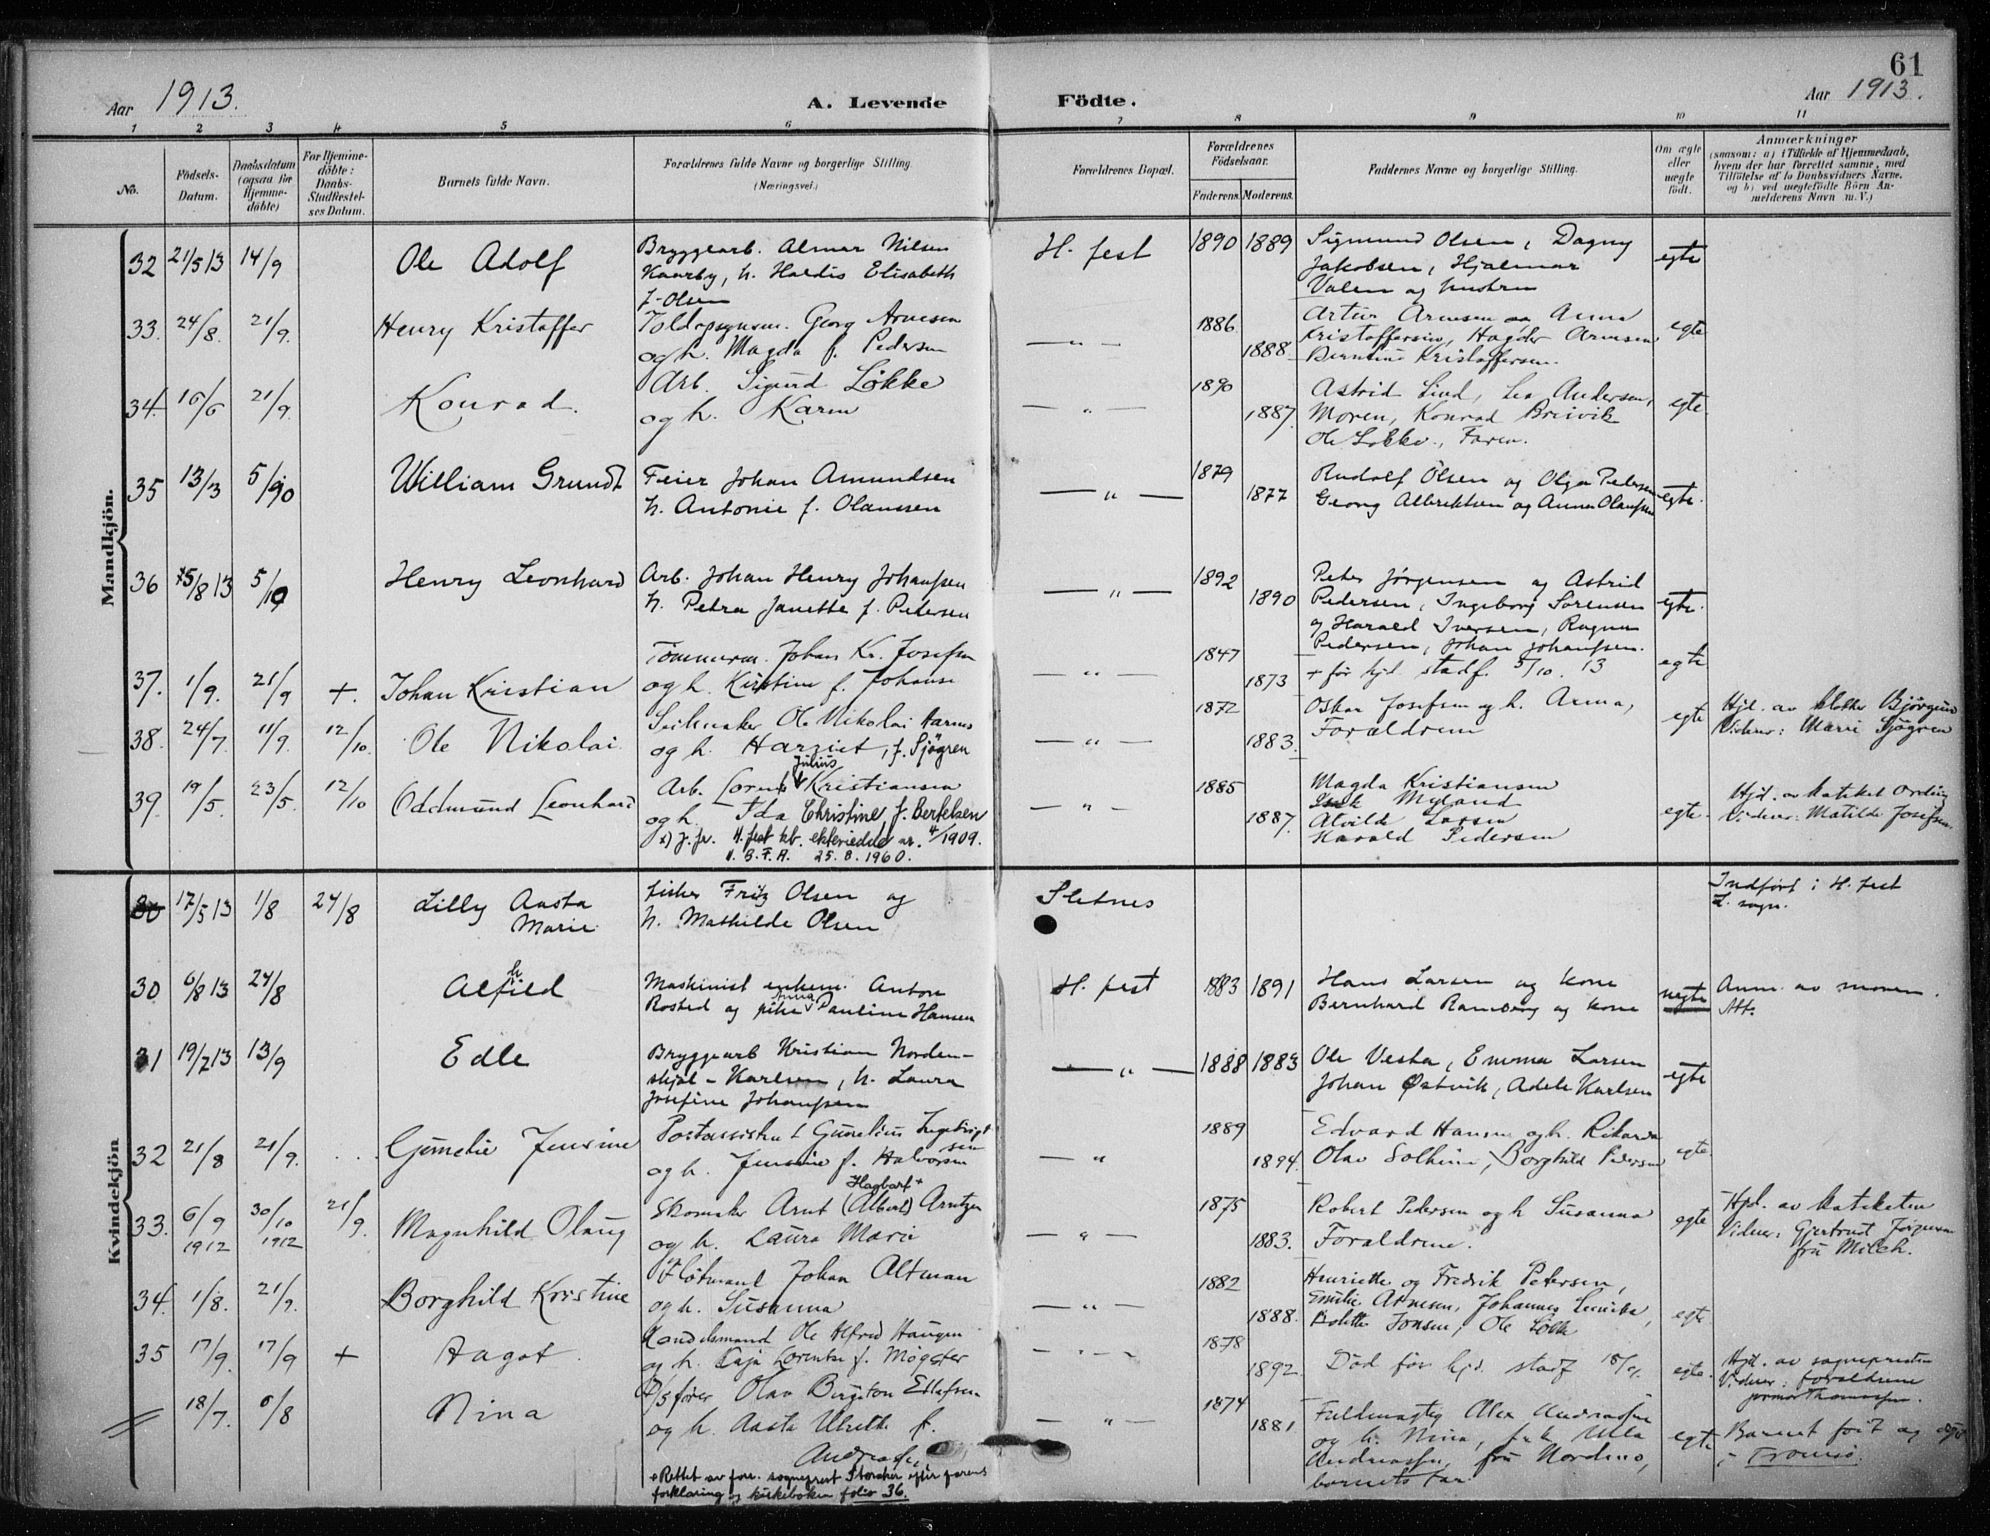 61
Aar 1913.
A. Levende Födte.
Aar 1913.
1 2 3 4 5 6 7 8 9 10 11
No.
Födsels-Datum.
Daabsdatum (ogsaa for Hjemme-döbte)
For Hjemme-döbte: Daabs-Stadfæstel-ses Datum.
Barnets fulde Navn.
Forældrenes fulde Navne og borgerlige Stilling.
(Næringsvei.)
Forældrenes Bopæl.
Forældrenes Födselsaar.
Faderens. Moderens.
Faddernes Navne og borgerlige Stilling.
Om ægte eller uægte födt.
Anmærkninger
(saasom: a) i Tilfælde af Hjemmedaab, hvem der har forrettet samme, med Tilföielse af to Daabsvidners Navne, og b) ved uægtefödte Börn An-melderens Navn m. V.)
Mandkjön.
32 21/5 13 14/9 Ole Adolf Bryggearb. Almar Nilsen H. fest 1890 1889 Sigmund Olsen, Dagny egte
Kaarby, h. Haldis Elisabeth Jakobsen, Hjalmar
f. Olsen Valen og hustru
33. 24/8. 21/9. Henry Kristoffer Georg Arnesen — " — 1886 Artur Arnesen Anna egte
og h. Magda f. Pedersen 1888 Kristoffersen, Arnesen
Kristoffersen.
34. 16/6 21/9. Konrad. Arb. Sigurd Løkke — " — 1890 Astrid Lind, Andersen, egte
og h. Karen 1887. Moren, Konrad Breivik
Ole Løkke, Faren.
35 13/3 5/10 William Grundt Feier Johan Amundsen — " — 1879 Rudolf Olsen og Olga Pedersen egte.
h. Antonie f. Olaussen 1877 Georg Albriktsen og Anna Olaussen
36 15/8 13 5/10 Henry Leonhard Arb. Johan Henry Johanssen — " — 1892 Peter Jørgensen og Astrid egte.
h. Petra Janette f. Pedersen 1890 Pedersen, Ingeborg Sørensen
og Harald Iversen, Ragna
Pedersen, Johan Johanssen.
37. 1/9. 21/9 +. Johan Kristian Tømmerm. Johan Kr. Josefsen — " — 1847 + før hjd. stadf. 5/10. 13 egte
og h. Kirstine f. Johanse 1873
38. 24/7. 11/9. 12/10. Ole Nikolai. Seilmaker Ole Nikolai Aarnes — " — 1872 Oskar Josefsen og h. Anna, egte Hjd. av klokker Bjørgum
og h. Harriet, f. Sjøgren 1883. Forældrene Vidner: Marie Sjøgren
39. 19/5. 23/5. 12/10 Oddmund Leonhard Arb. Lorents Julius Kristiansen — " — 1885 Magda Kristiansen egte. Hjd. av kateket Ording
og h. Ida Christine, f. Bertelsen 1887. Myland Vidner: Matilde Josefsen
x) j. fr. H. fest kb. ekteviedde nr. 4/1909. Alvilde Larsen
25. 8. 1960. Harald Pedersen
Kvindekjön
30 17/5 13 1/8 24/8 Lilly Aasta Marie fisker Fritz Olsen og Sletnes Indført i H. fest
h. Mathilde Olsen L. sogn.
30 6/8 13 24/8 Alfhild Maskinist enkem. Anton H. fest 1883 1891 Hans Larsen og kone uegte Anm. av moren.
Rosted og pike Anna Pauline Hansen Bernhard Ramberg og kone Att.
31 19/7 13 13/9 Edle Bryggearb Kristian Norden- — " — 1888 1883 Ole Vesta, Emma Larsen egte
skjøl - Karlsen, h. Laura Johan Østvik, Adele Karlsen
Josefine Johanssen
32 21/8 21/9. Jensine Postassistent Gunelius Ingebrigtsen — " 1889 Edvard Hansen og h. Rikarda egte.
og h. Jensine f. Halvorsen 1894. Olav Solheim, Borghild Pedersen
33. 6/9 1912 30/10 1912 21/9. Magnhild Olaug Skomaker Arnt (Albert) Hagbart + Arntzen — " — 1875 Robert Pedersen og h Susanna egte Hjd. av kateketen
og h. Laura Marie 1883. Forældrene. Vidner: Gjertrud Jørgensen
fru Milch.
34. 1/8. 21/9. Borghild Kristine Johan Altman — " — 1882 Henriette og Fredrik Petersen, egte.
og h. Susanna 1888. Emilie Arnesen, Johannes
Jonsen, Ole Løkk
35 17/9. 17/9 + Aagot. Handelsmand Ole Alfred Haugen — " — 1878 Død før hjd. stadf egte. Hjd. av sognepresten
og h. Kaja Lorentse f. Møgster 1892. Vidner: forældrene
Thomassen.
18/7. 6/8 Nina D/s fører Olav Birgiton Ellefsen — " — 1874 Fuldmægtig Alex Andreassen egte Barnet født og døpt
og h. Aasta Ulrikke f. 1881 og h. Nina, frk Ulla i Tromsø.
Andreassen Andreassen, fru Nordmo,
barnets far.
+ Rettet av forr. sogneprest Storaker efter farens
forklaring og kirkeboken folio 36.